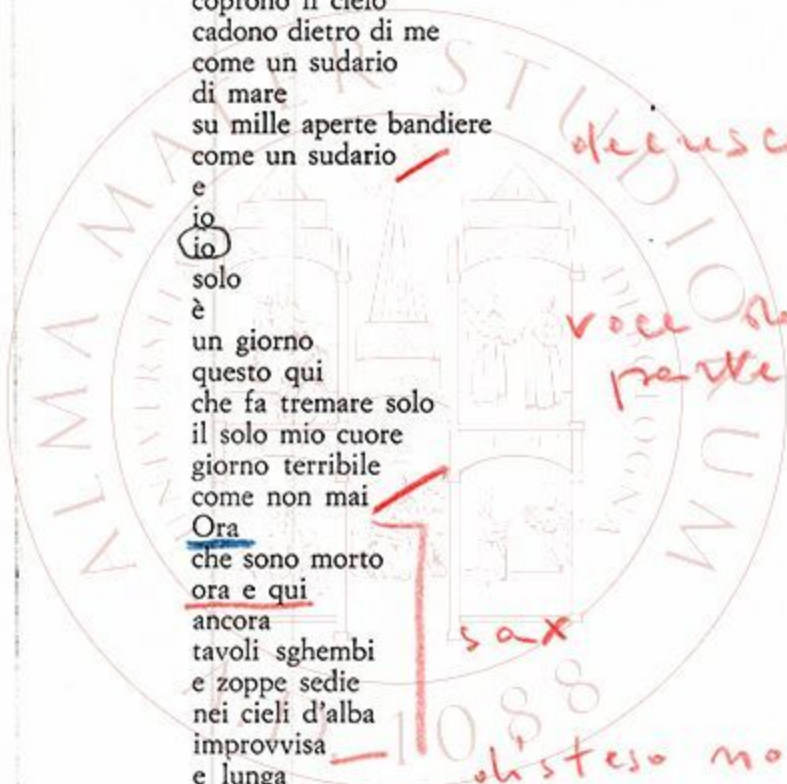 coprono il cielo
cadono dietro di me
come un sudario
di mare
su mille aperte bandiere
come un sudario
e
io
io
solo
è
un giorno
questo qui
voce
che fa tremare solo
il solo mio cuore
giorno terribile
come non mai
Ora
che sono morto
ora e qui
ancora
sax
tavoli sghembi
e zoppe sedie
nei cieli d'alba
improvvisa
e lunga
disteso
ALMA MATER STUDIORUM
A.D. 1088